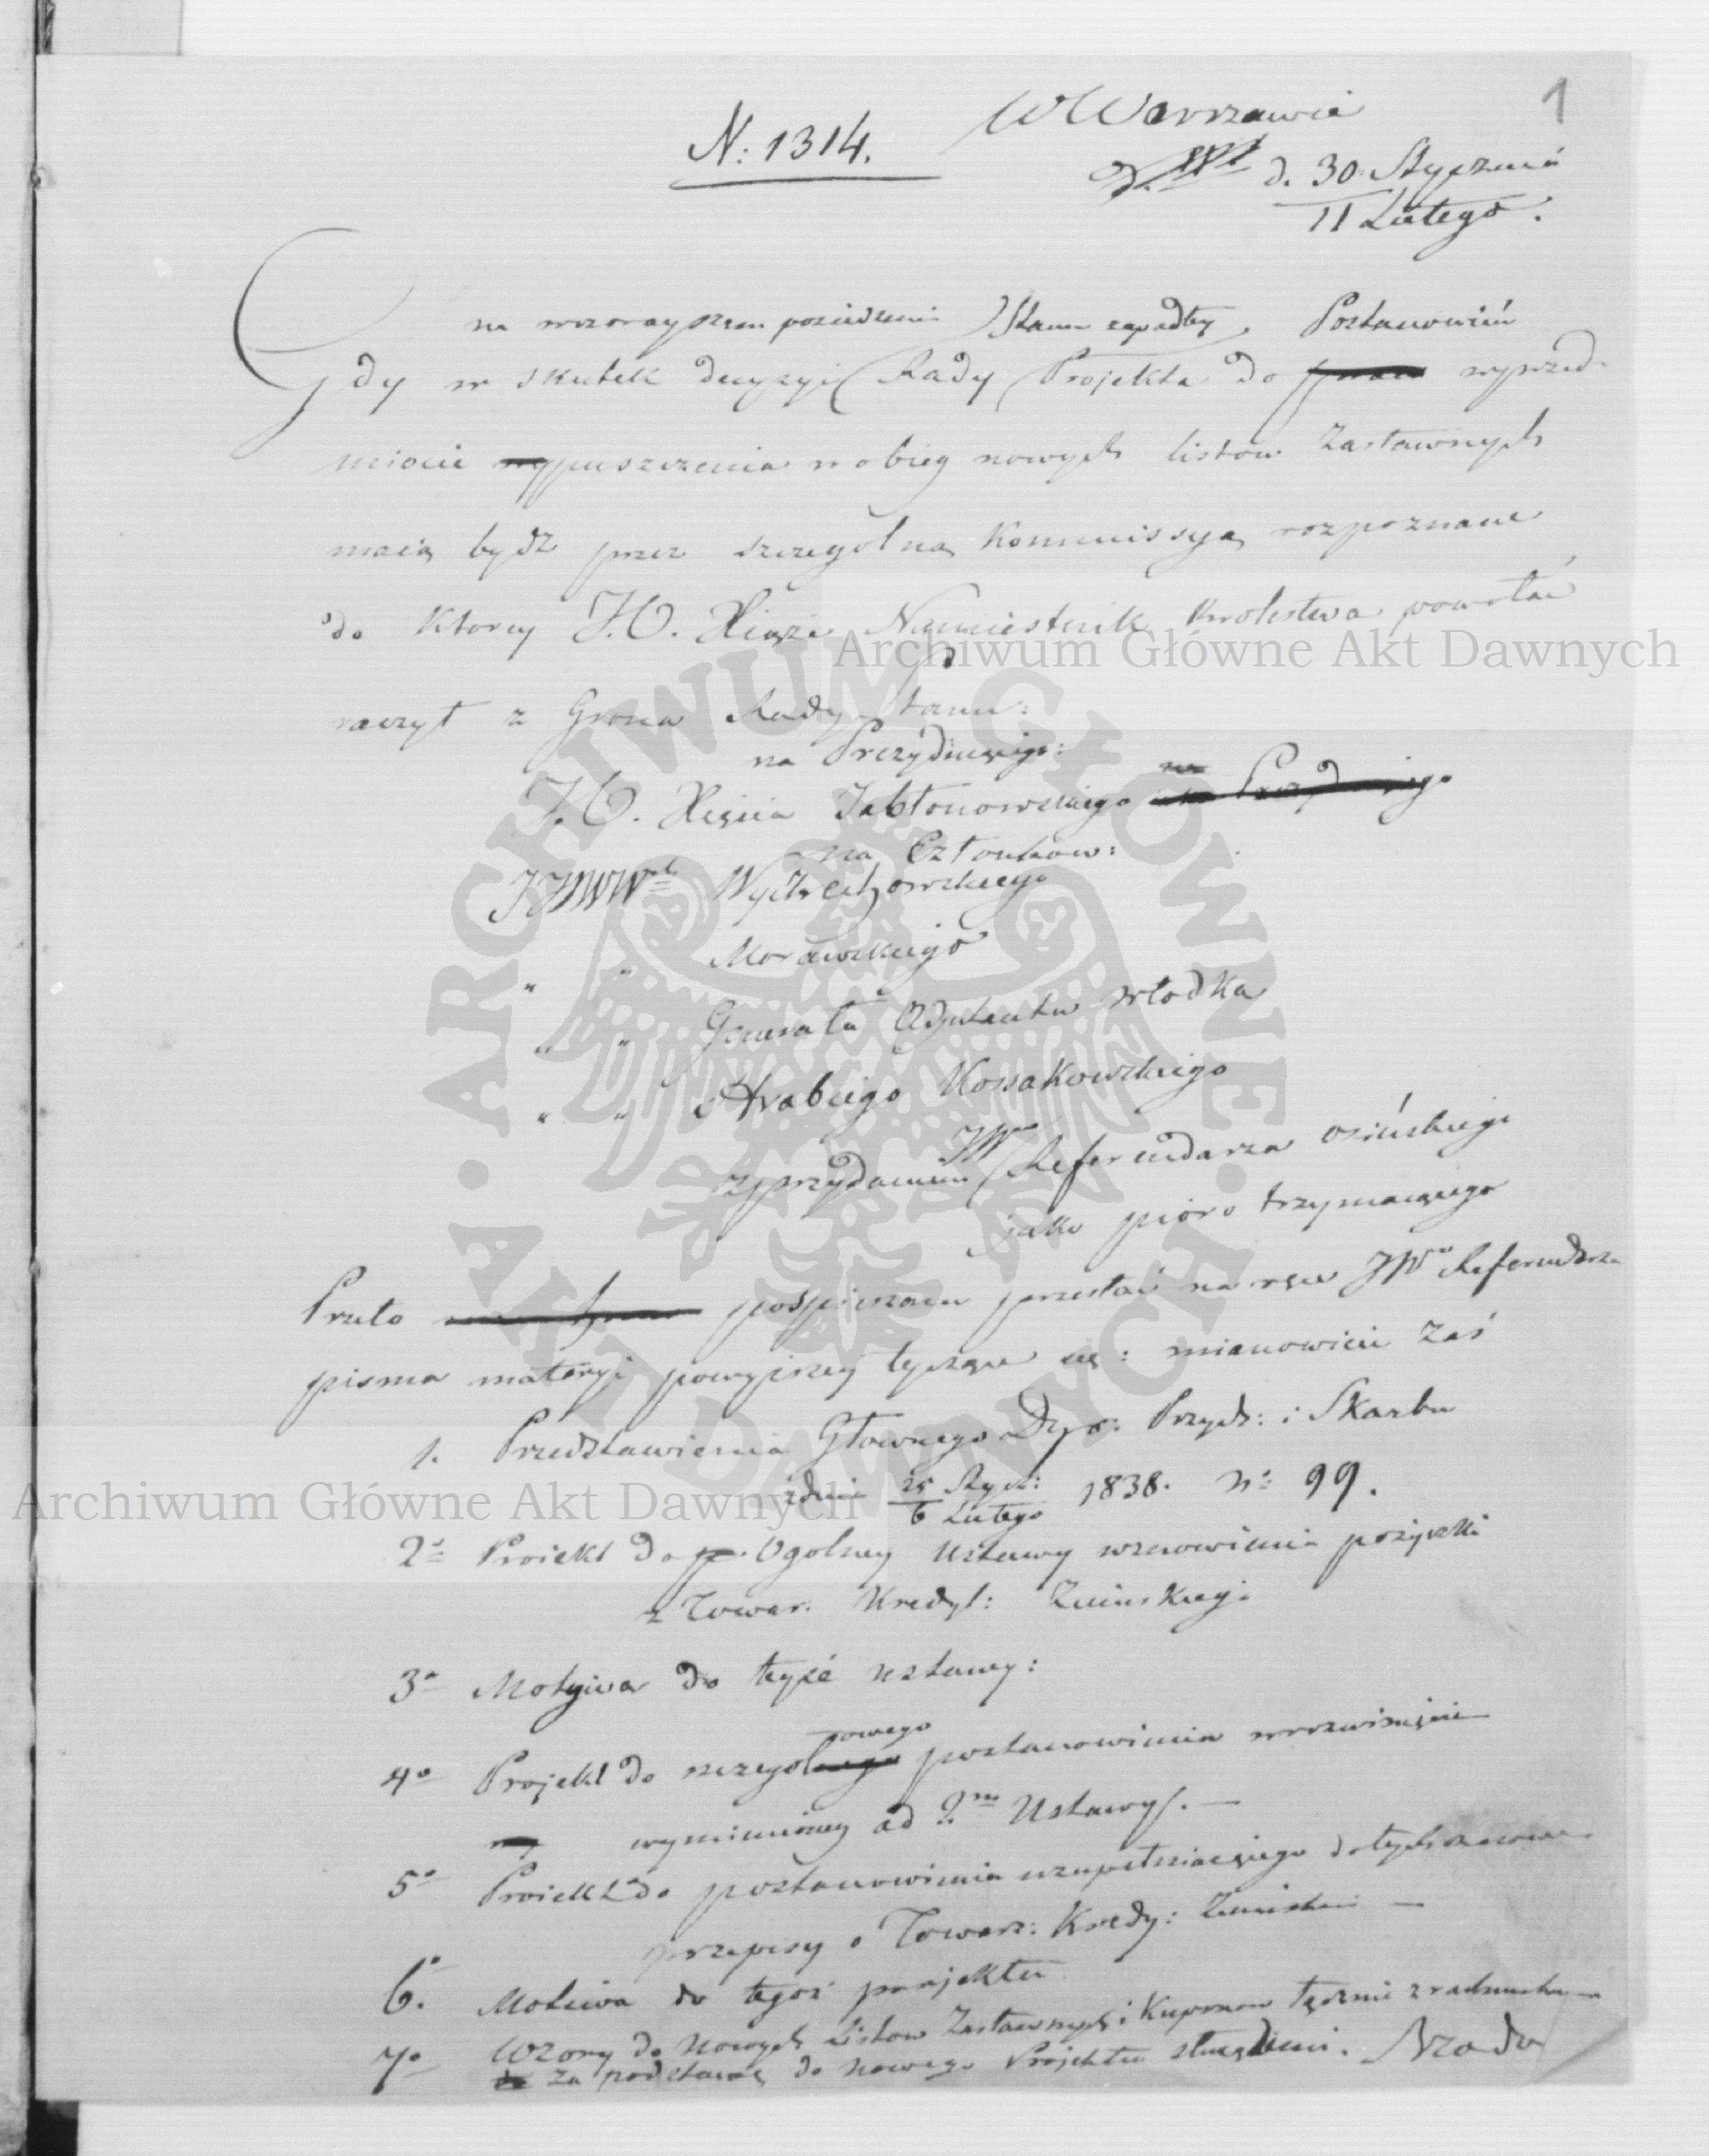 1
W Warszawie
N: 1314.
d. 30 Stycznia
11 Lutego.
na wczorayszem posiedzeniu Stanu zapadłey, Postanowień
Gdy w skutek decyzyi Rady Projekta do wprzed-
miocie wypuszczenia w obieg nowych listow Zastawnych
maią bydź przez szczegolną Kommissyą rozpoznane
do ktorey J.O. Xiąże Namiestnik Krolestwa powołać
raczył z Grona Rady Stanu:
na Prezyduiącego:
J.O. Xięcia Jabłonowskiego na Prezyduiącego
na Członkow:
JJWW Wyczechowskiego
" " Morawskiego
" " Generała Adjutanta Włodka
" " Hrabiego Kossakowskiego
z przydaniem JW Referendarza Osińskiego
jako pióro trzymaiącego
Przeto pospieszam przesłać na ręce JW Referendarza
pisma materyi powyższey tyczące się: mianowicie zaś
1. Przedstawienia Głownego Dyr: Przych: i Skarbu
zdnia 25 Stycz: 1838. N: 99.
6 Lutego
2 Proiekt do Ogolney Ustawy wznowienia pożyczki
z Towar. Kredyt: Ziemskiego
3 Motywa do teyże ustawy:
nowego
4 Projekt do szczegolnego postanowienia w rozwinięcie
wymienioney ad 2 Ustawy. —
5 Proiekt do postanowienia uzupełniaiącego dotychczasowe
przepisy o Towarz: Kredy: Ziemskim —
6. Motiwa do tegoż projektu
7 Wzory do Nowych Listow Zastawnych i Kuponow łącznie z rachunkiem
za podstawę do nowego Projektu służącemi. Rzada
Archiwum Główne Akt Dawnych
Archiwum Główne Akt Dawnych
ARCHIWUM GŁÓWNE AKT DAWNYCH